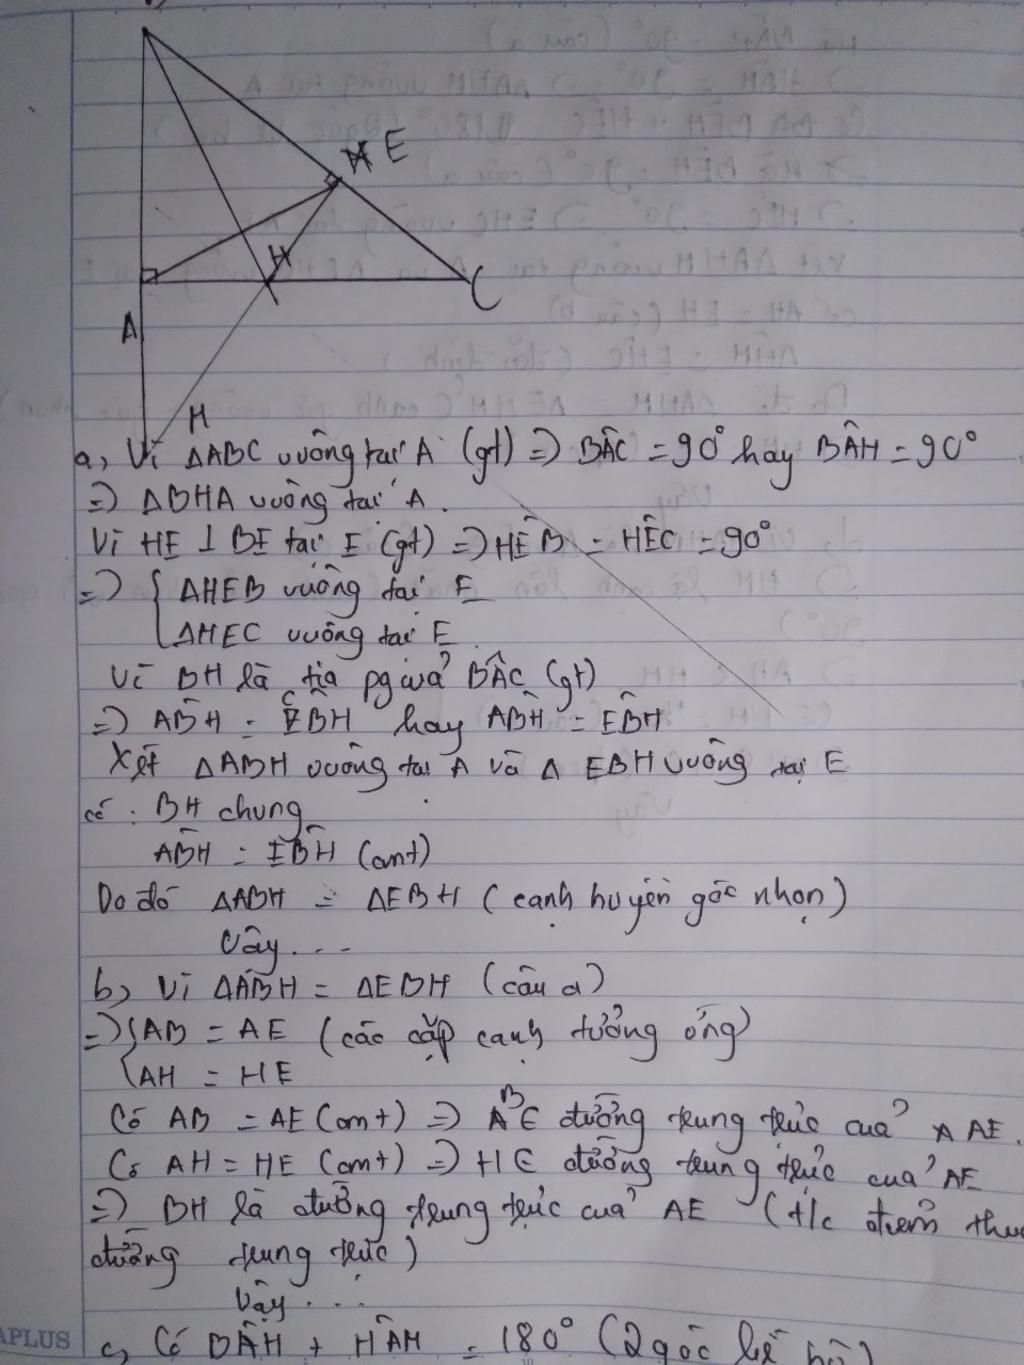 E
H
C
A
M
a, Vì ΔABC vuông tại A (gt) => BÂC = 90° hay BÂH = 90°
=> ΔBHA vuông tại A.
Vì HE ⊥ BE tại E (gt) => HÊB = HÊC = 90°
=> { ΔHEB vuông tại E
ΔHEC vuông tại E.
Vì BH là tia pg của BÂC (gt)
=> AB̂H = CB̂H hay AB̂H = EB̂H
Xét ΔABH vuông tại A và Δ EBH vuông tại E
có : BH chung
AB̂H = EB̂H (cmt)
Do đó ΔABH = ΔEBH (cạnh huyền góc nhọn)
Vậy....
b, Vì ΔABH = ΔEBH (câu a)
=> { AB = AE (các cặp cạnh tưởng ứng)
AH = HE
Có AB = AE (cmt) => B ∈ đường trung trực của AE.
Có AH = HE (cmt) => H ∈ đường trung trực của AE
=> BH là đường trung trực của AE (t/c điểm thu
đường trung trực)
Vậy....
APLUS
c, Có BÂH + HÂM = 180° (2 góc kề bù)